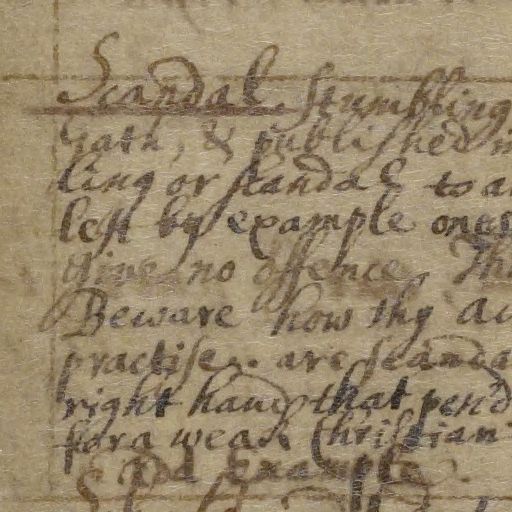 Scandal. Stumbling
Gath, & published in
ling or skandal to a
lest by example ones
Give no offence. The
Beware how thy ac
practise. are scanda
right hand that pend
for a weak Christian
Bad example.